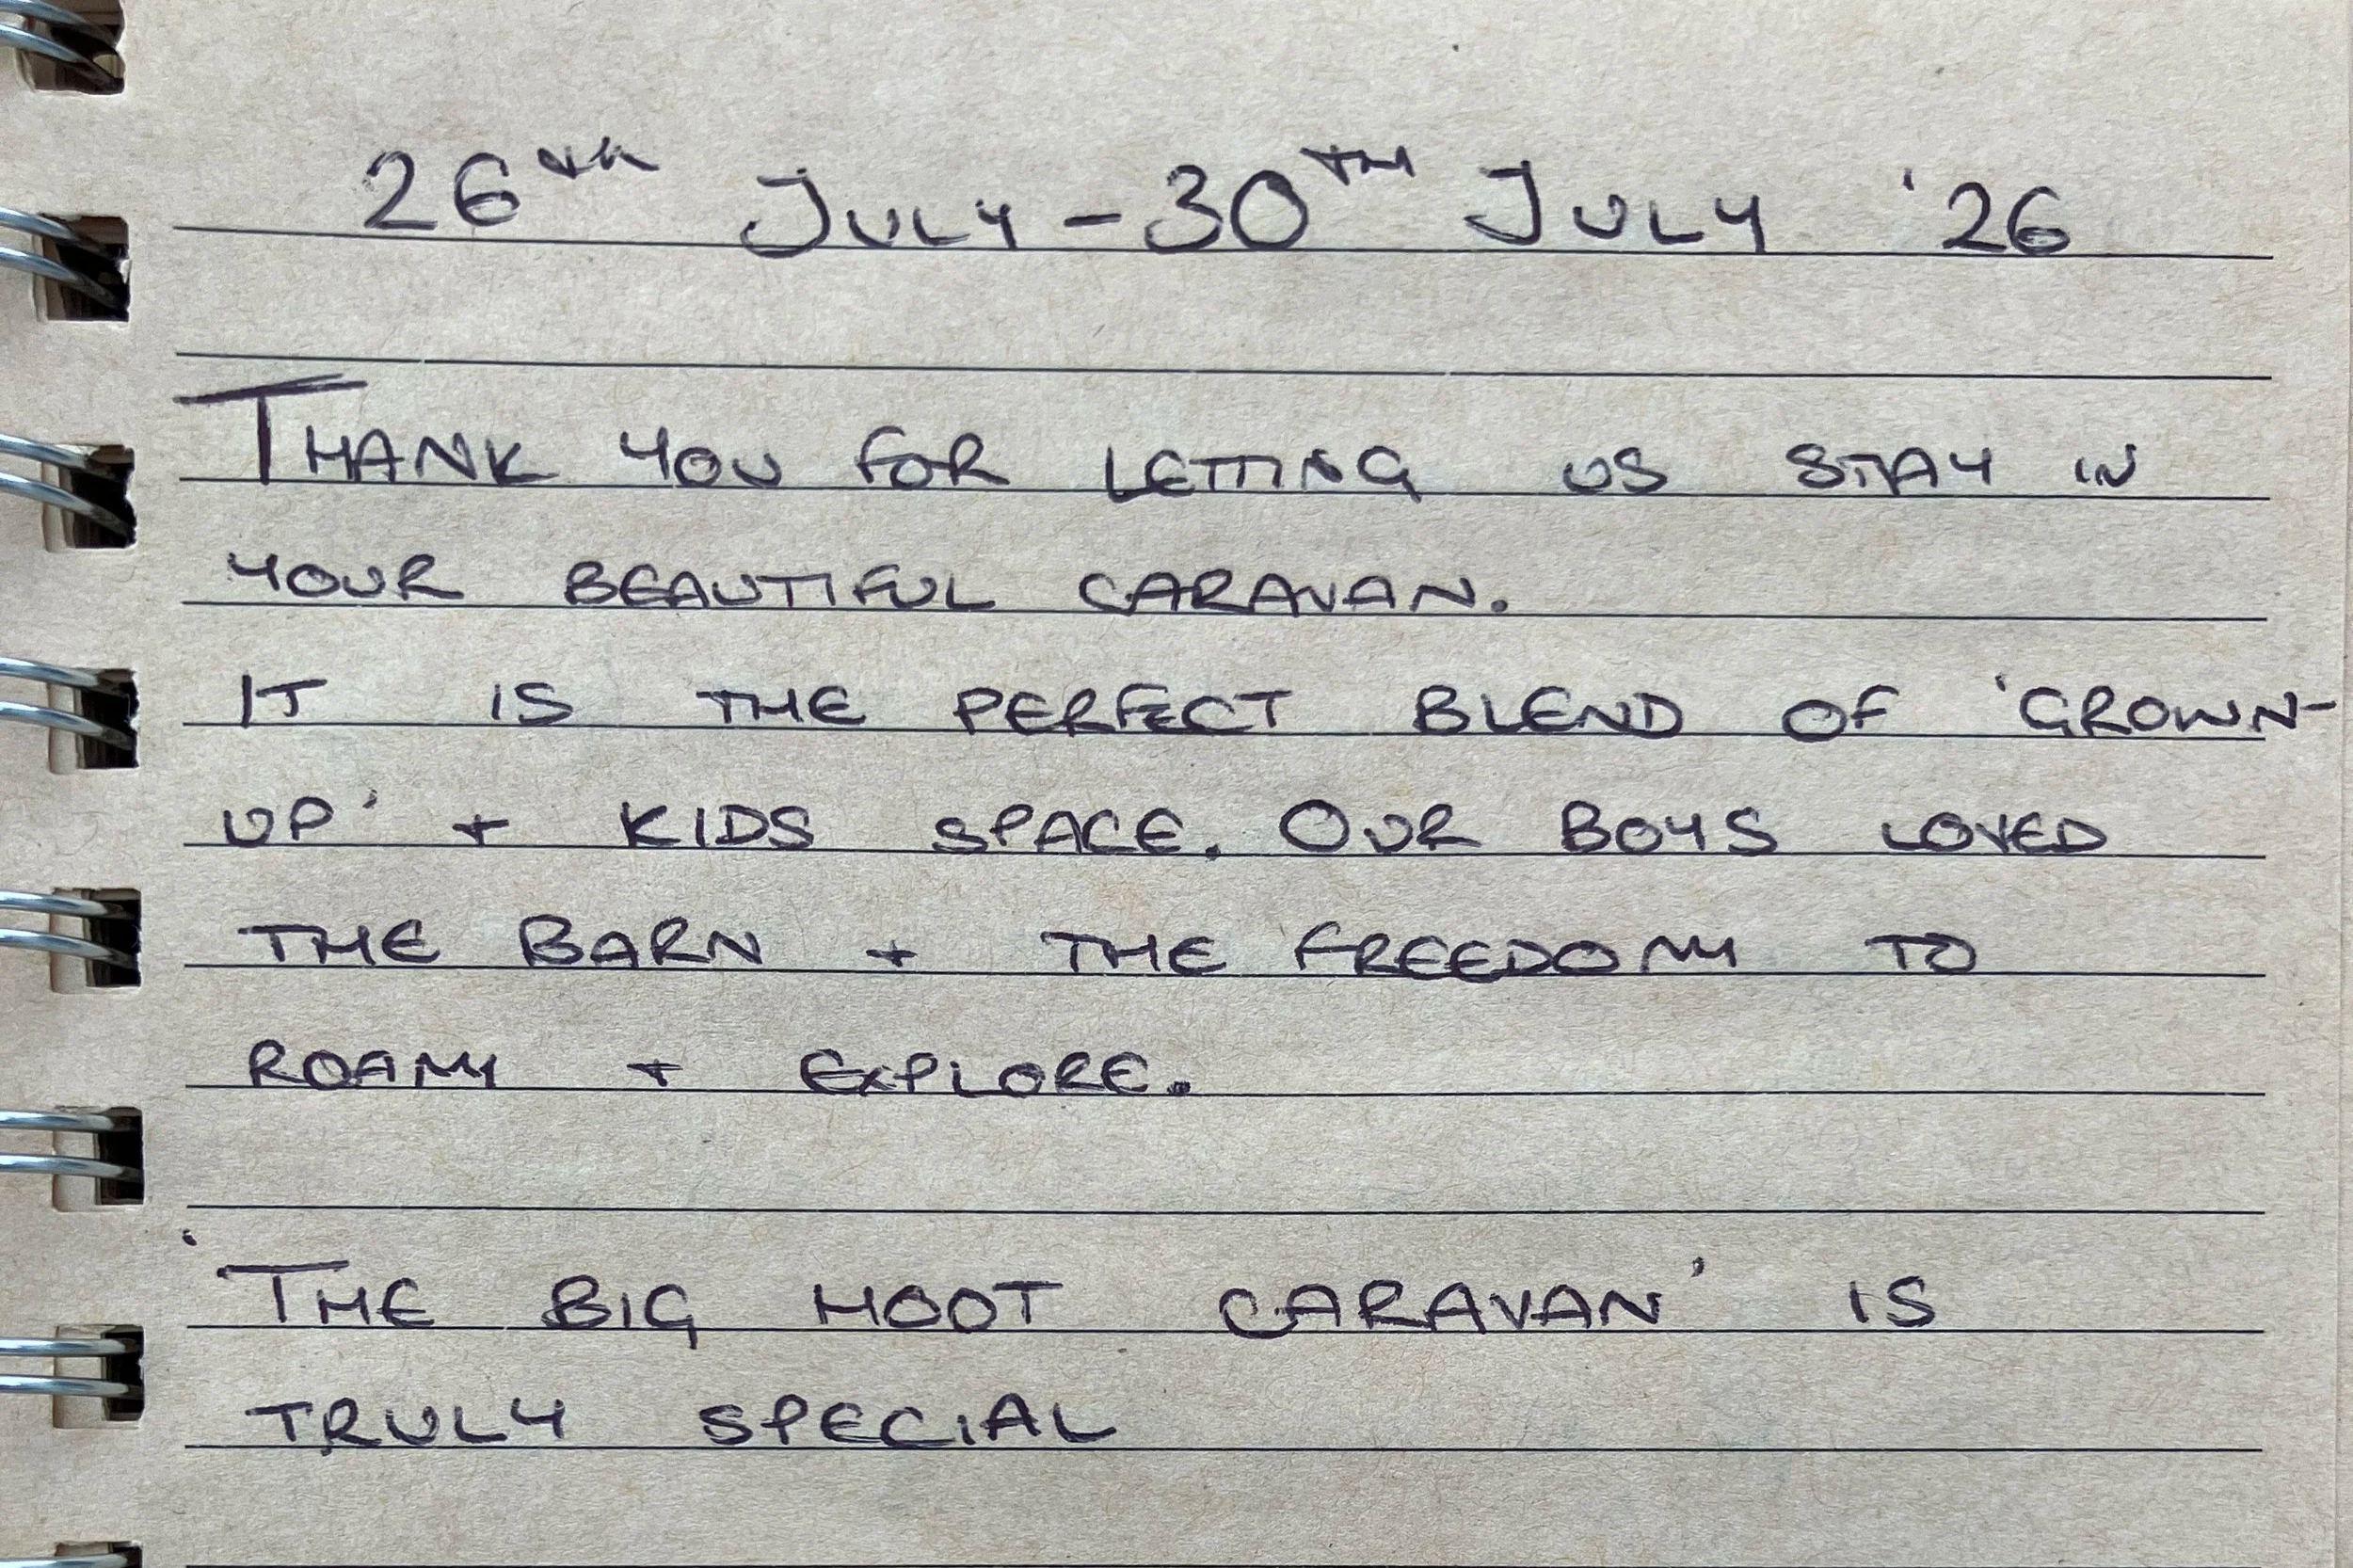 26th JULY - 30TH JULY '26
THANK YOU FOR LETTING US STAY IN
YOUR BEAUTIFUL CARAVAN.
IT IS THE PERFECT BLEND OF 'GROWN-
UP' + KIDS SPACE. OUR BOYS LOVED
THE BARN + THE FREEDOM TO
ROAM + EXPLORE.
'THE BIG HOOT CARAVAN' IS
TRULY SPECIAL